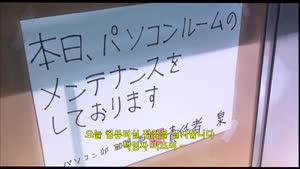 本日、パソコンルームの
メンテナンスを
しております
パソコン部
責任者 泉
오늘 컴퓨터실 점검을 합니다
책임자